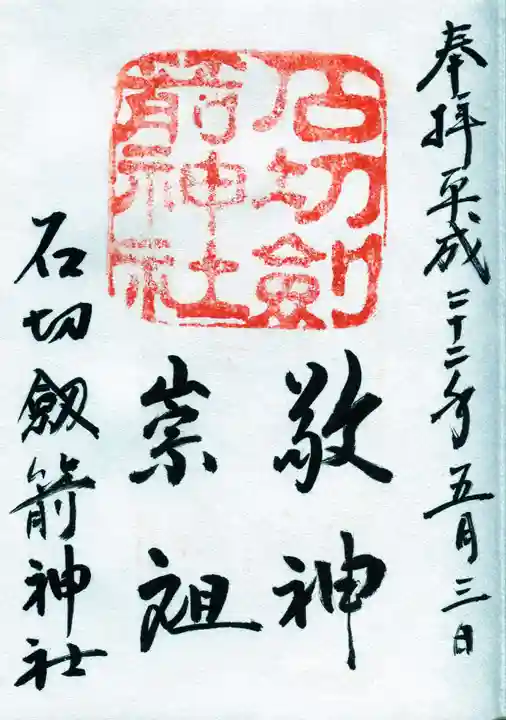 奉拝平成二十二年五月三日
敬神
崇祖
石切劔
箭神社
石切劔箭神社